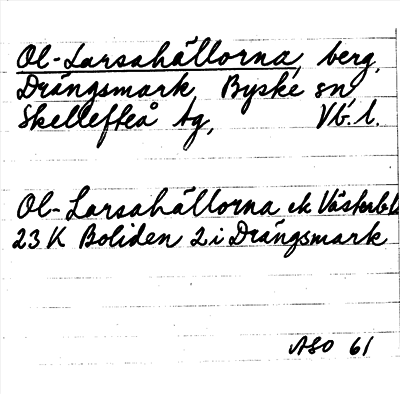 Ol-Larsahällorna, berg,
Drängsmark, Byske sn,
Skellefteå tg, Vb. l.
Ol-Larsahällorna ek Västerb l
23 K Boliden 2 i Drängsmark
ASO 61